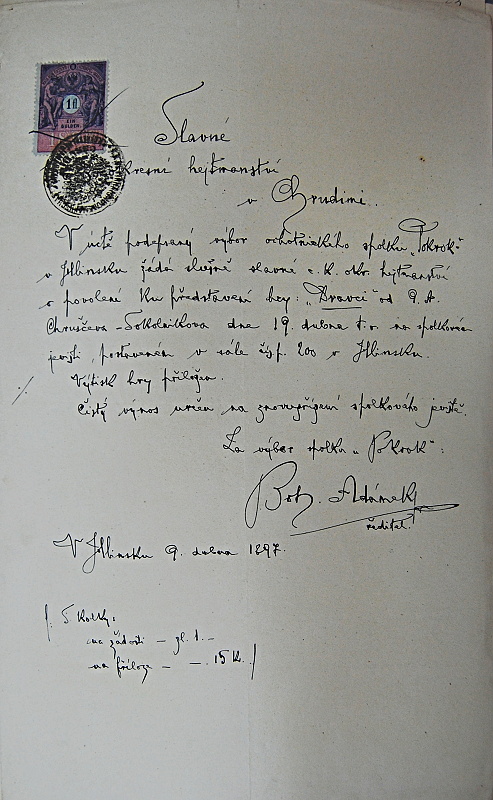 1 fl
EIN
GULDEN
Slavné
kresní hejtmanství
v Chrudimi.
V úctě podepsaný výbor ochotnického spolku „Pokrok“
v Hlinsku žádá slušně slavné c. k. okr. hejtmanství
o povolení ku představení hry: „Dravci“ od G. A.
Chruščeva-Sokolnikova dne 19. dubna t. r. na spolkovém
jevišti, postaveném v sále čp. 200 v Hlinsku.
Výtisk hry přiložen.
Čistý výnos určen na znovuzřízení spolkového jeviště.
Za výbor spolku „Pokrok“:
Boh. Adámek
ředitel.
V Hlinsku 9. dubna 1897.
kolky:
na žádosti – zl. 1.–
na příloze – –. 15 k.